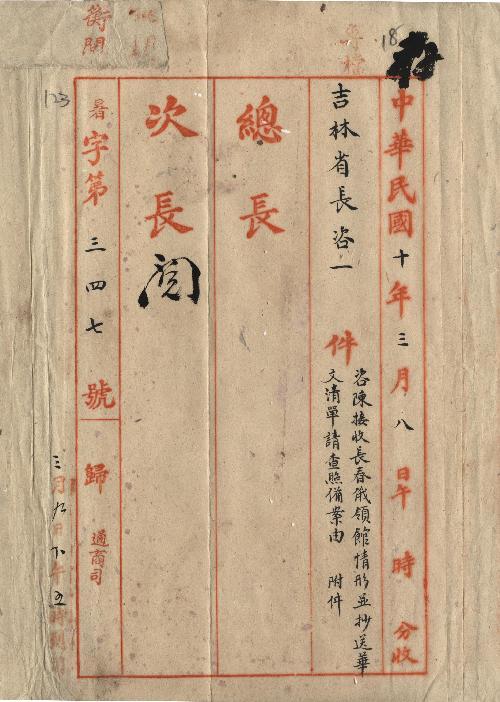 18
中華民國十年三月八日午 時 分收
吉林省長咨一件
咨陳接收長春俄領館情形並抄送華
文清單請查照備案由 附件
總長
次長 閱
暑字第三四七號 歸 通商司
123
三月九日下午五時